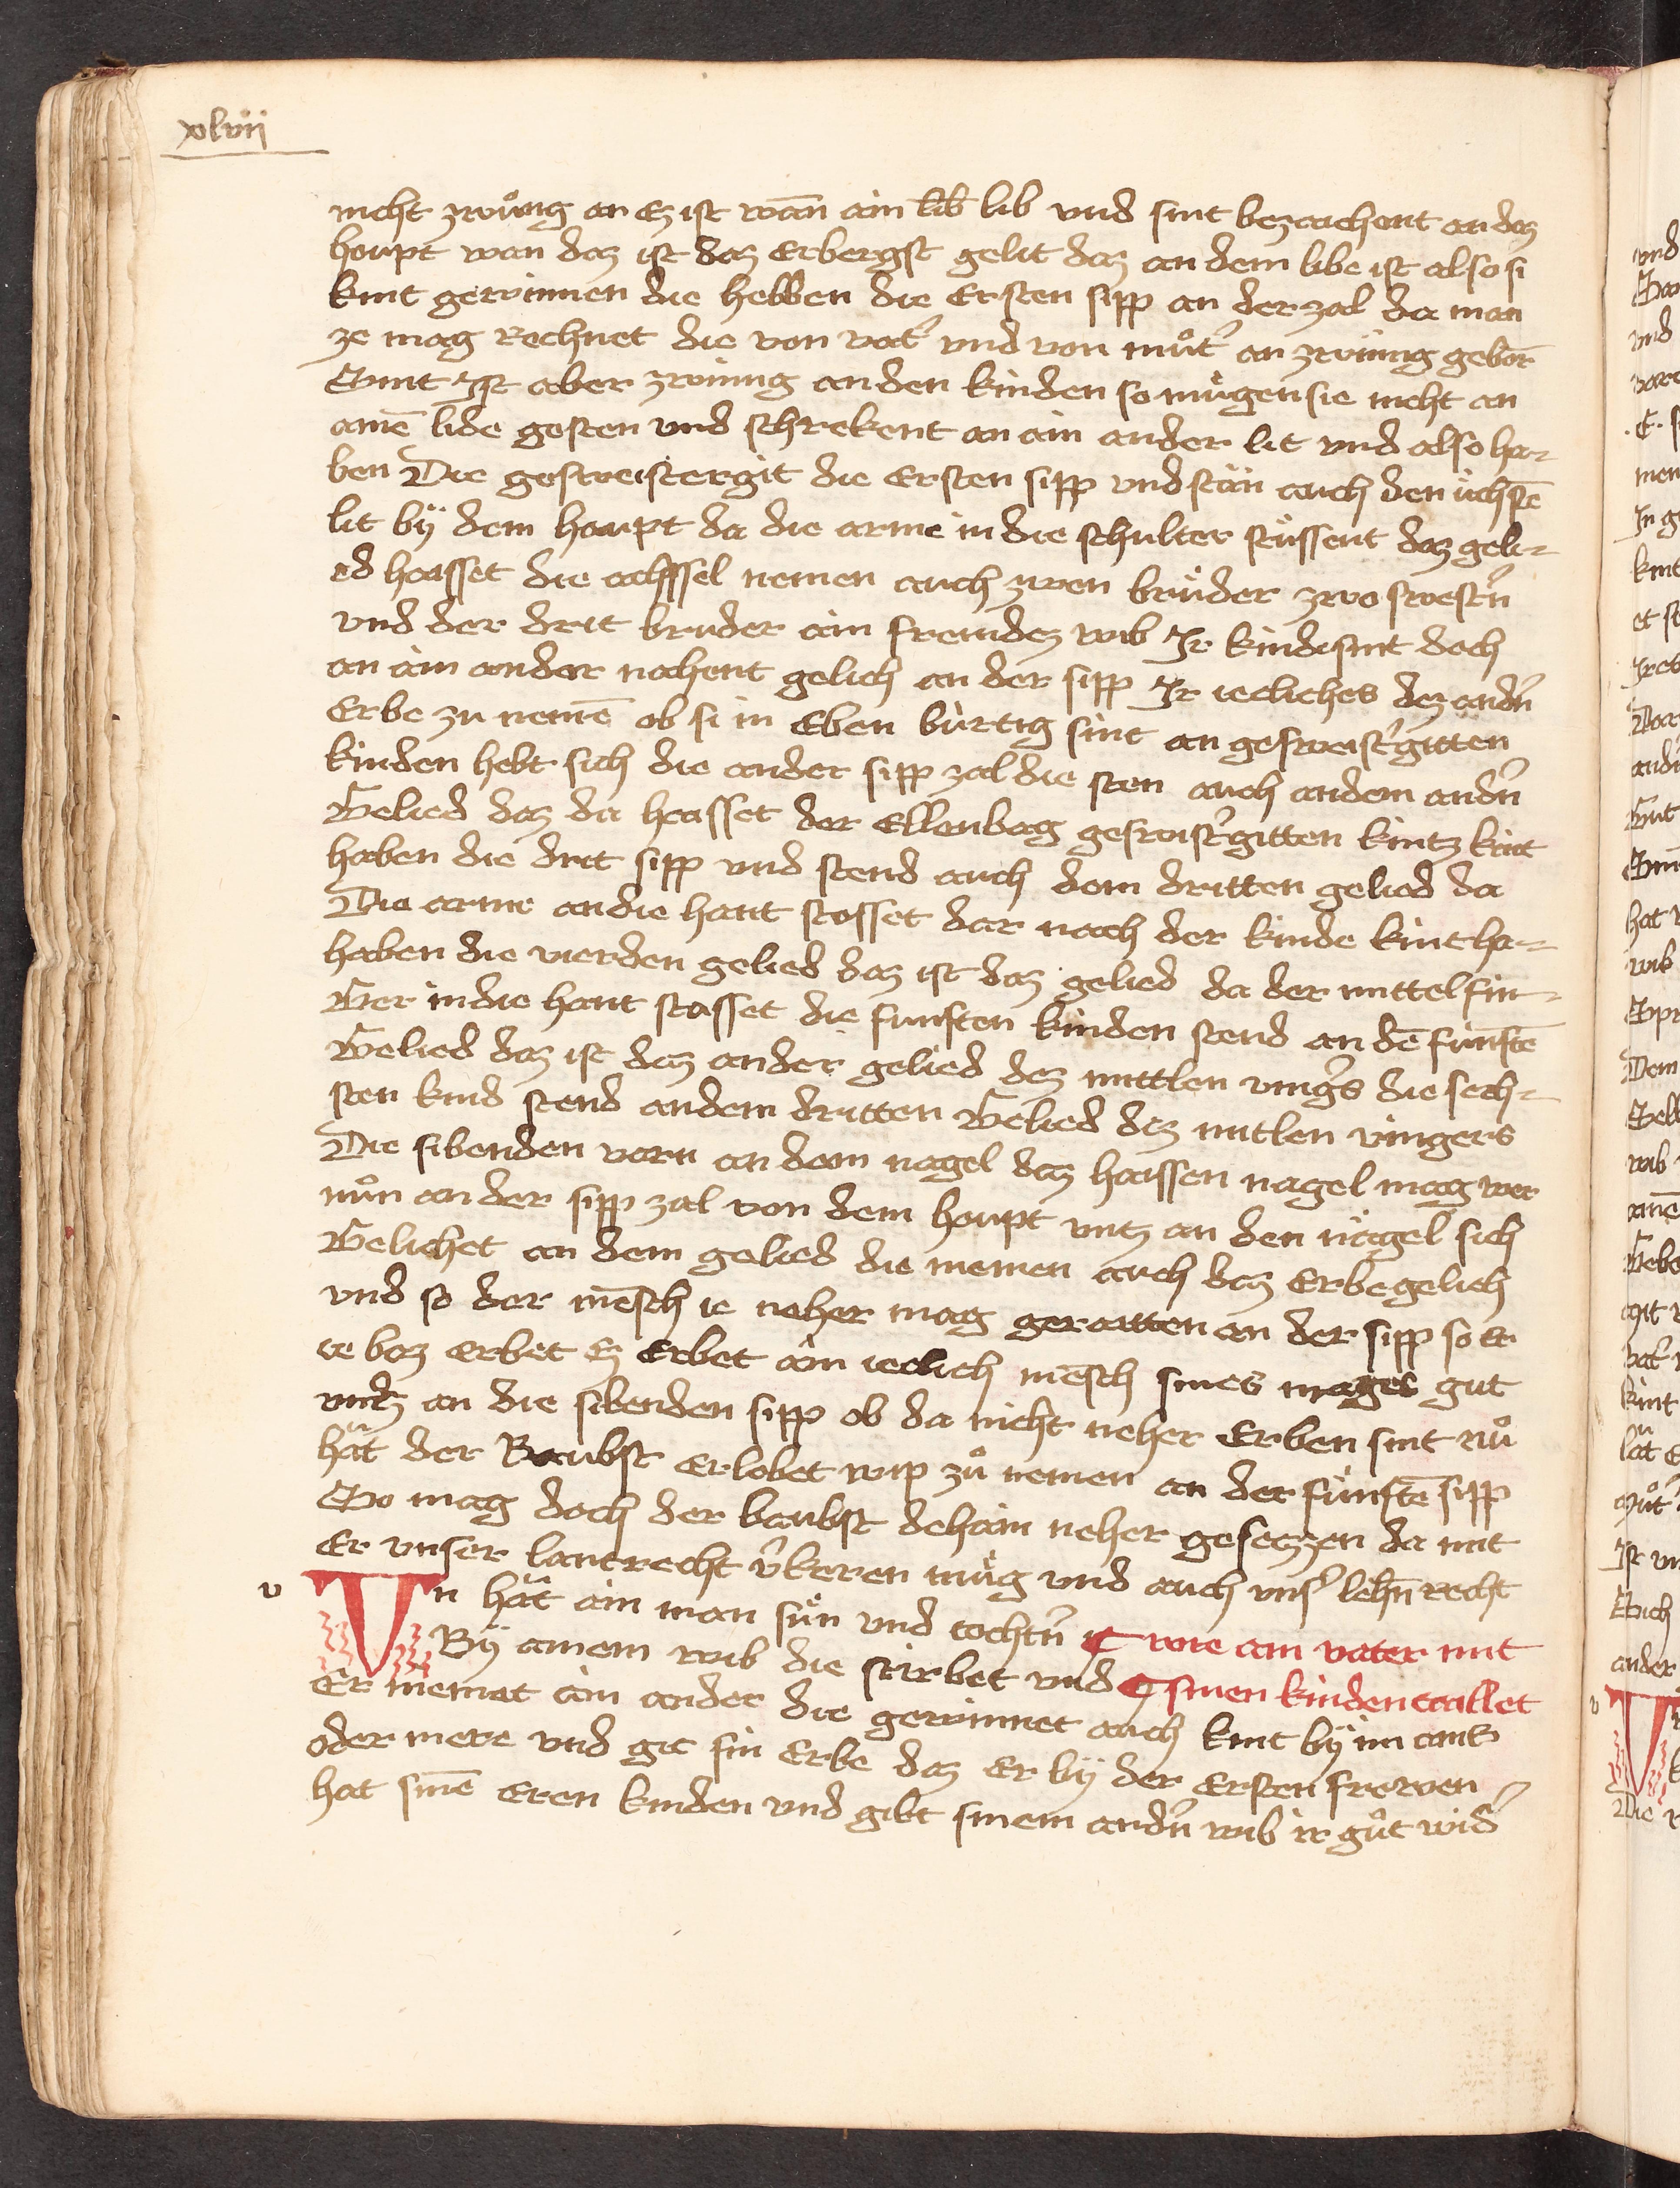 xlvii
nicht zwuͦng an Ez ist wan̄ ain lib lib vnd sint bezaichent an daz
houpt wan daz ist daz Erbergst gelit daz an dem libe ist also si
kint gewinnen die hebben die Ersten sipp an der zal da man
ze mag Rechnet die von vat͛ vnd von muͦt͛ an zwiung geborn̄
Sint Ist aber zwiung an den kinden so mugen sie nicht an
ainē lide gesten vnd schrekent an ain ander lit vnd also ha-
ben Die geswistergit die Ersten sipp vnd stän auch den nechstē
lit bÿ dem houpt da die arme in die schulter stossent daz geli-
ed haisset die achssel nemen auch zwen bruͤder zwo swestrn̄
vnd der drit bruder ain fremdez wib Ir kinde sint doch
an ain ander nachent gelich an der sipp Ir iecliches dez andrn̄
Erbe zu nemē ob si in Eben burtig sint an geswist͛gitten
kinden hebt sich die ander sipp zal die sten auch an dem andrn̄
Gelied daz da haisset der Ellenbog geswist͛gitten kintz kint
haben die drit sipp vnd stend auch dem dritten gelied da
Die arme an die hant stosset dar nach der kinde kint ha-
haben die vierden gelied daz ist daz gelied da der mittel fin-
Ger in die hant stosset die funften kinden stend an dē funftē
Gelied daz ist daz ander gelied dez mittlen ving͛s die sech-
sten kind stend an dem dritten Gelied dez mitlen vingers
Die sibenden vorn an dem nagel daz haissen nagel mag wer
nuͦn an der sipp zal von dem houpt vntz an den nagel sich
Gelichet an dem gelied die nemen auch daz Erbe gelich
vnd so der mēsch ie neher mag geraitten an der sipp so Er
ie baz erbet Ez Erbet ain ieclich mēsch sines mages gut
vntz an die sibenden sipp ob da nicht neher Erben sint nuͦ
hät der Baubst Erlobet wip zuͦ nemen an der funftē sipp
So mag doch der baubst dehain neher gesetzzen da mit
Er vnser lantrecht v͛keren muͤg vnd auch vns͛ lehn̄ recht
v
Vn hät ain man suͤn vnd tochtrn̄ ¶ wie ain vater mit
Bÿ ainem wib die stirbet vnd ¶ sinen kinden taillet
Er niemat ain ander die gewinnet auch kint bÿ im ains
oder mere vnd git sin Erbe daz Er bÿ der Ersten frowen
hat sinē Eren kinden vnd gibt sinem andrn̄ wib ir guͦt wid͛